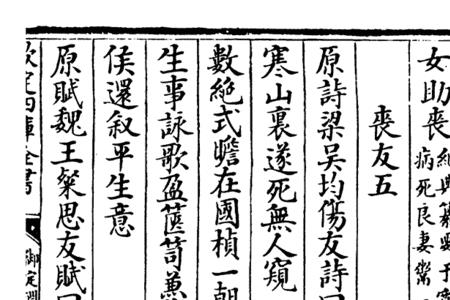 女助喪
病死良妻鬻
喪友五
原詩梁吳均傷友詩曰
寒山裏遂死無人窺
數絕式瞻在國楨一朝
生事詠歌盈篋笥兼
侯還叙平生意
原賦魏王粲思友賦曰
欽定四庫全書
御定淵